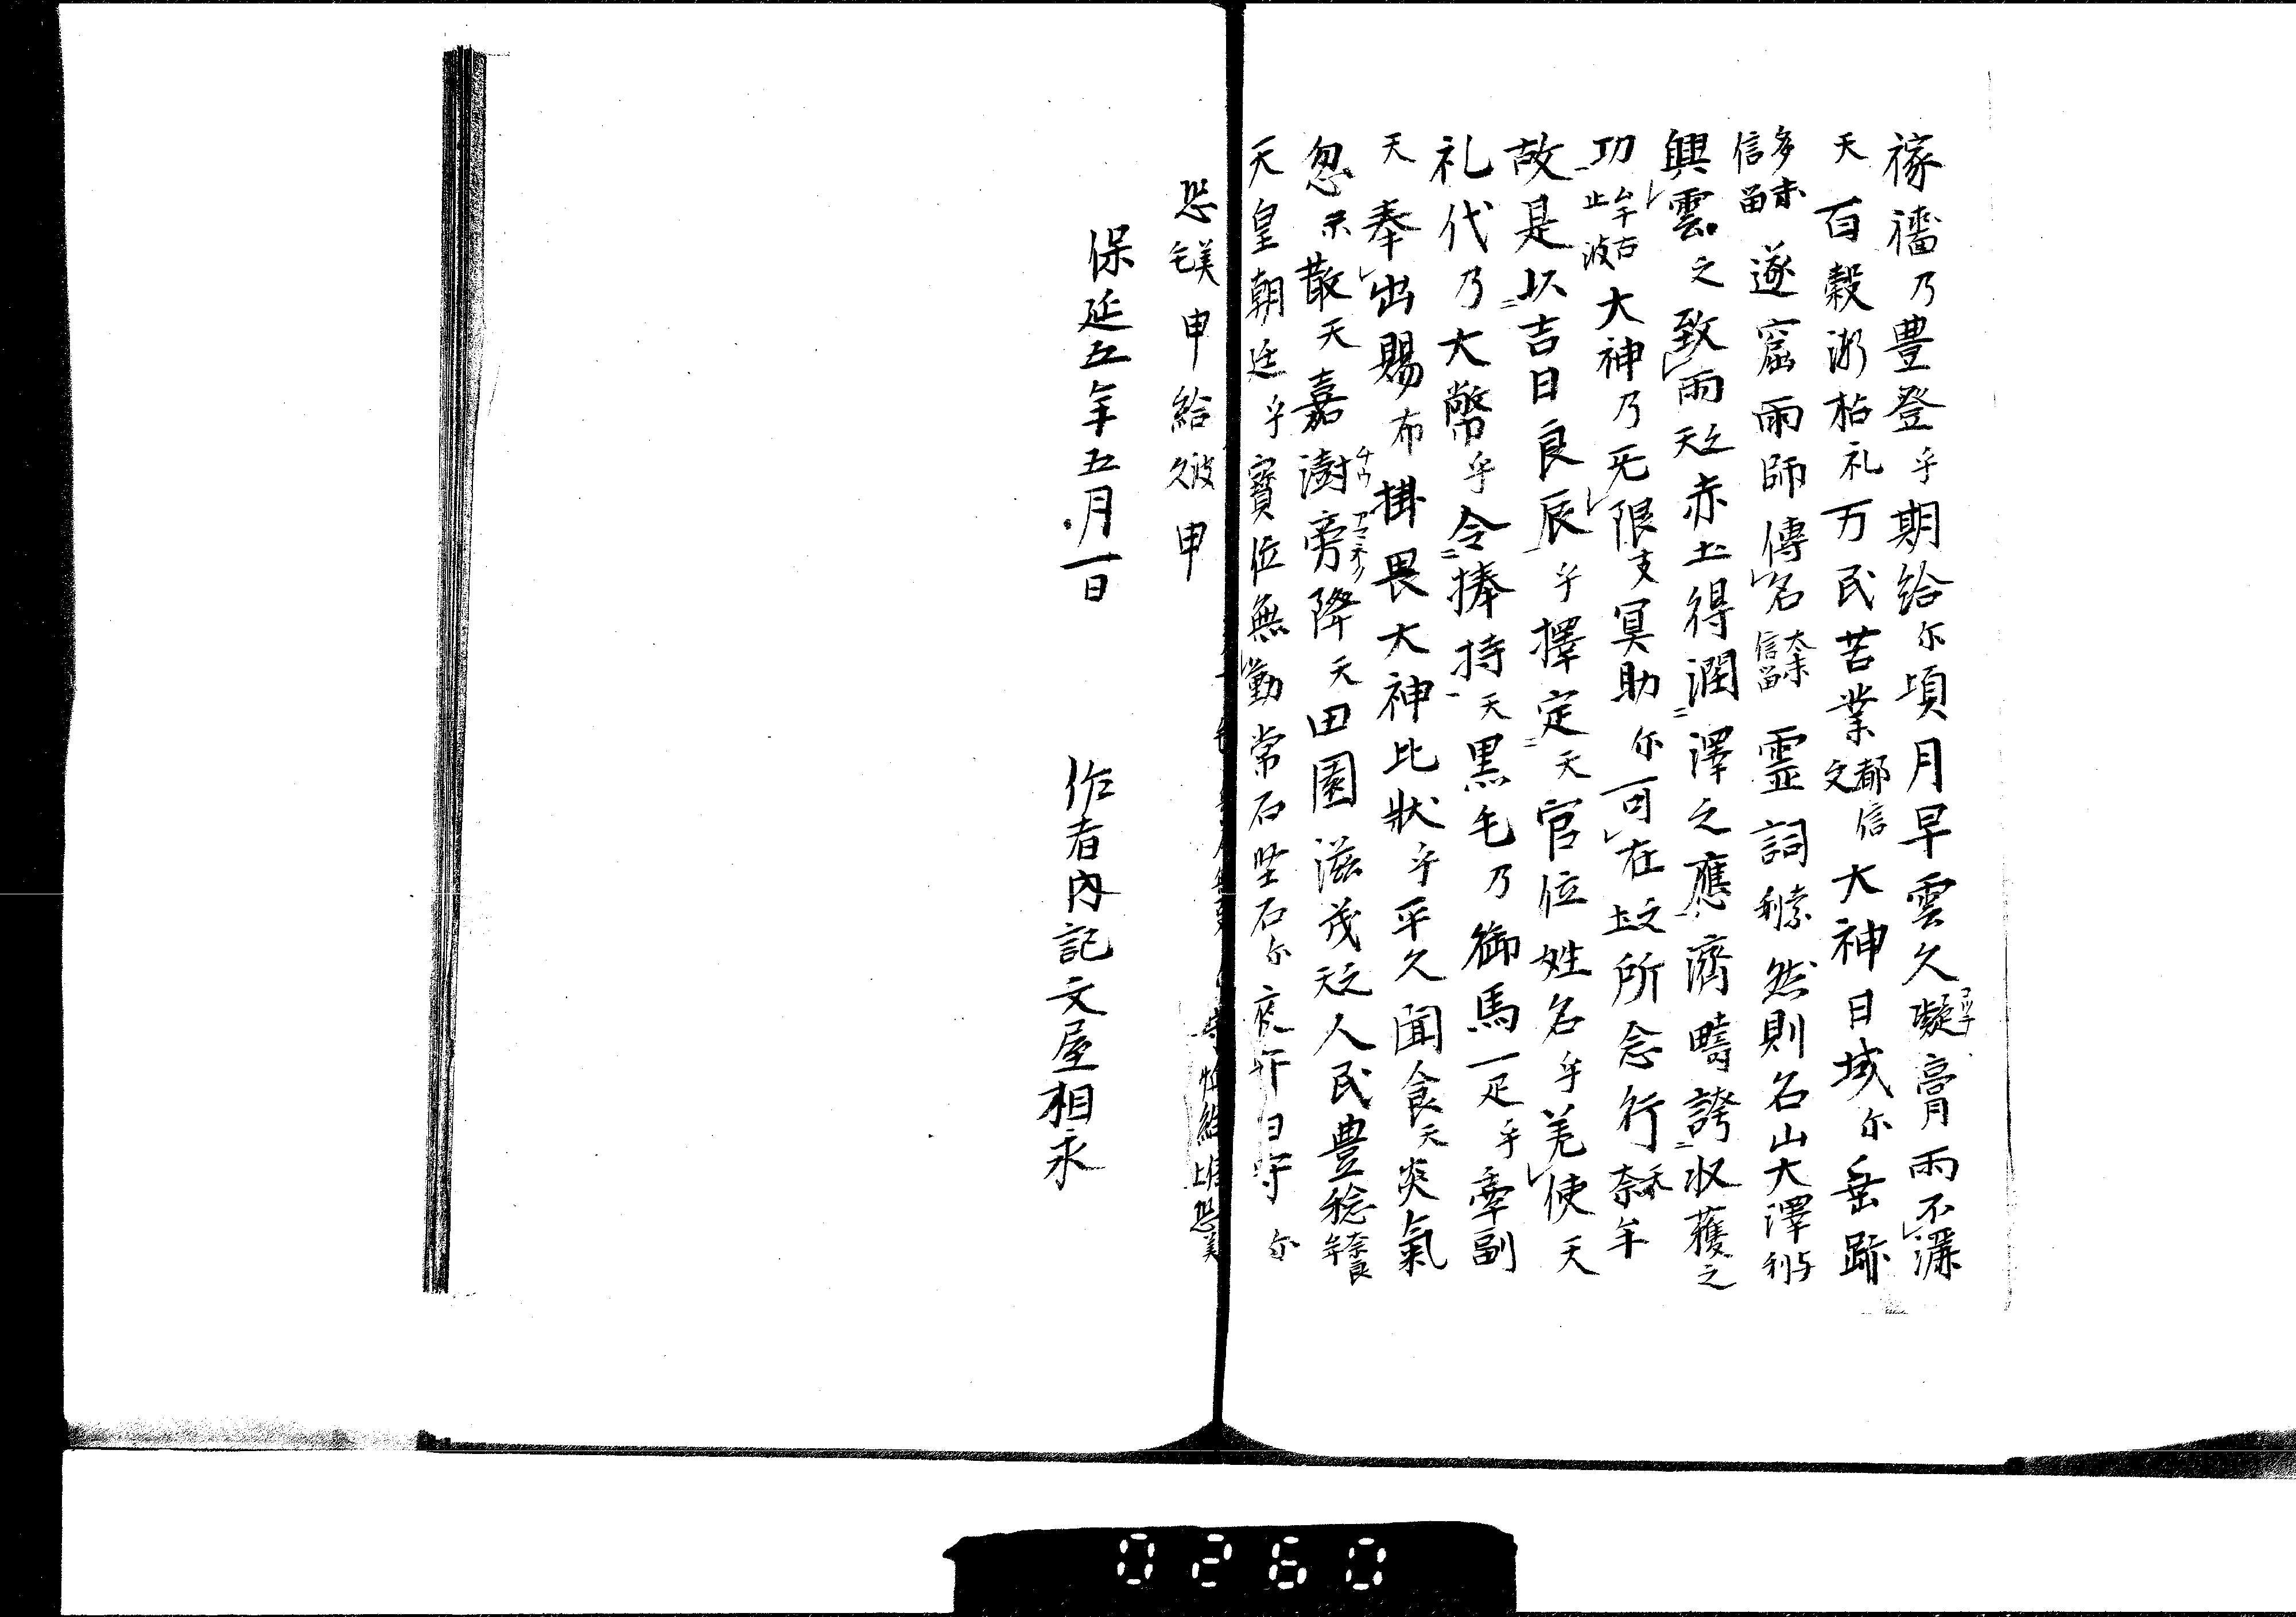 稼穡乃豊登乎期給尓頃月早雲久凝膏雨不灑
天百穀漸枯礼万民苦業都信文大神日域尓垂跡
多未信留遂窟雨師傳名太末信留霊詞利然則名山大澤与利
興雲之致雨天之赤土得潤澤之應濟疇誇収獲之
功牟古止波大神乃无限支冥助尓可在之止所念行奈牟
故是以吉日良辰乎擇定天官位姓名乎差使天
礼代乃大幣乎令捧持天黒毛乃御馬一疋乎牽副
天奉出賜布掛畏大神比状乎平久聞食天炎氣
忽尓散天嘉澍旁降天田園滋茂之天人民豊稔奈良牟
天皇朝廷乎寶位無動常石堅石尓夜守日守尓
恐美毛申給久波申
保延五年五月一日
作者内記文屋相永
0260